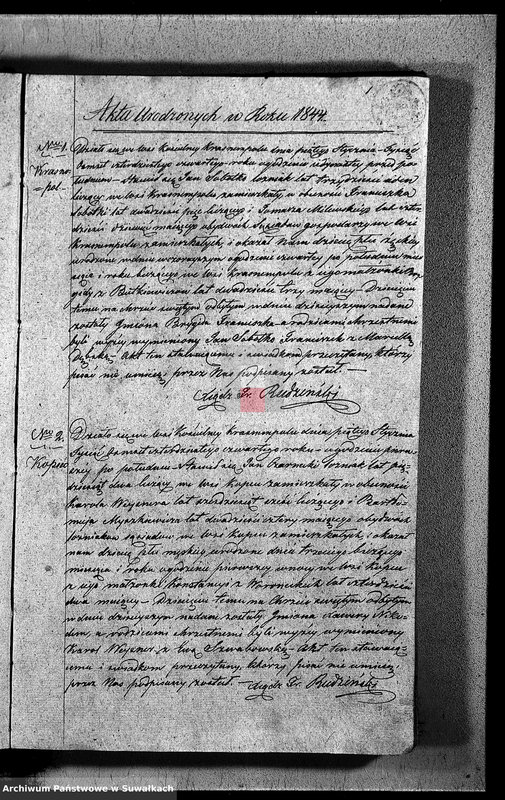 1
Akta Urodzonych w Roku 1844.
Nro 1.
Krasno
=pol.
Działo się we wsi Kościelny Krasnempolu dnia piątego Stycznia Tysiąc
ośmset czterdziestego czwartego roku o godzinie jedynastej przed po=
łudniem – Stawił się Jan Sobotko rolniak lat trzydzieści
liczący we wsi Krasnempolu zamieszkały w obecności Franciszka
Sobotki lat dwadzieścia pięć liczącego i Tomasza Milewskiego lat czter
dzieści mającego obydwóch gospodarzy we wsi
Krasnempolu zamieszkałych, i okazał Nam dziecię płci żeńskiej
urodzone w dniu wczorajszym o godzinie czwartej po południu mie
siąca i roku bieżącego we wsi Krasnempolu z jego małżonki Bry
gidy z Rutkiewiczów lat dwadzieścia trzy mającej – Dziecięciu
temu na chrzcie świętym odbytym w dniu dzisiejszym nadane
zostały Imiona Brygida Franciszka a rodzicami chrzestnemi
był wyżej wymieniony Jan Sobotko Franciszek z Maryellą
– Akt ten stawającemu i świadkom przeczytany, którzy
pisać nie umieją przez Nas podpisany został. –
Xiądz Fr. Rudziński
Nro 2.
Kopiec
Działo się we wsi Kościelny Krasnempolu dnia piątego Stycznia
Tysiąc ośmset czterdziestego czwartego roku o godzinie pierw
szej po południu – Stawił się Jan Czarnecki rolniak lat pię
dziesiąt dwa liczący we wsi Kopcu zamieszkały w obecności
Karola Wejznera lat liczącego i Bartło
mieja lat dwadzieścia cztery mającego obydwóch
rolniaków sąsiadów we wsi Kopcu zamieszkałych, i okazał
nam dziecię płci męskiej urodzone dnia trzeciego bieżącego
miesiąca i roku o godzinie pierwszej w nocy we wsi Kopcu
z jego małżonki Konstancyi z Woronieckich lat czterdzieści
dwa mającej – Dziecięciu temu na Chrzcie świętym odbytym
w dniu dzisiejszym nadane zostały Imiona Xawery Niko
dem, a rodzicami chrzestnemi byli wyżej wymieniony
Karol Wejzner z Ewą – Akt ten stawają
cemu i świadkom przeczytany, którzy pisać nie umieją
przez Nas podpisany został. – Xiądz Fr. Rudziński
Archiwum Państwowe w Suwałkach